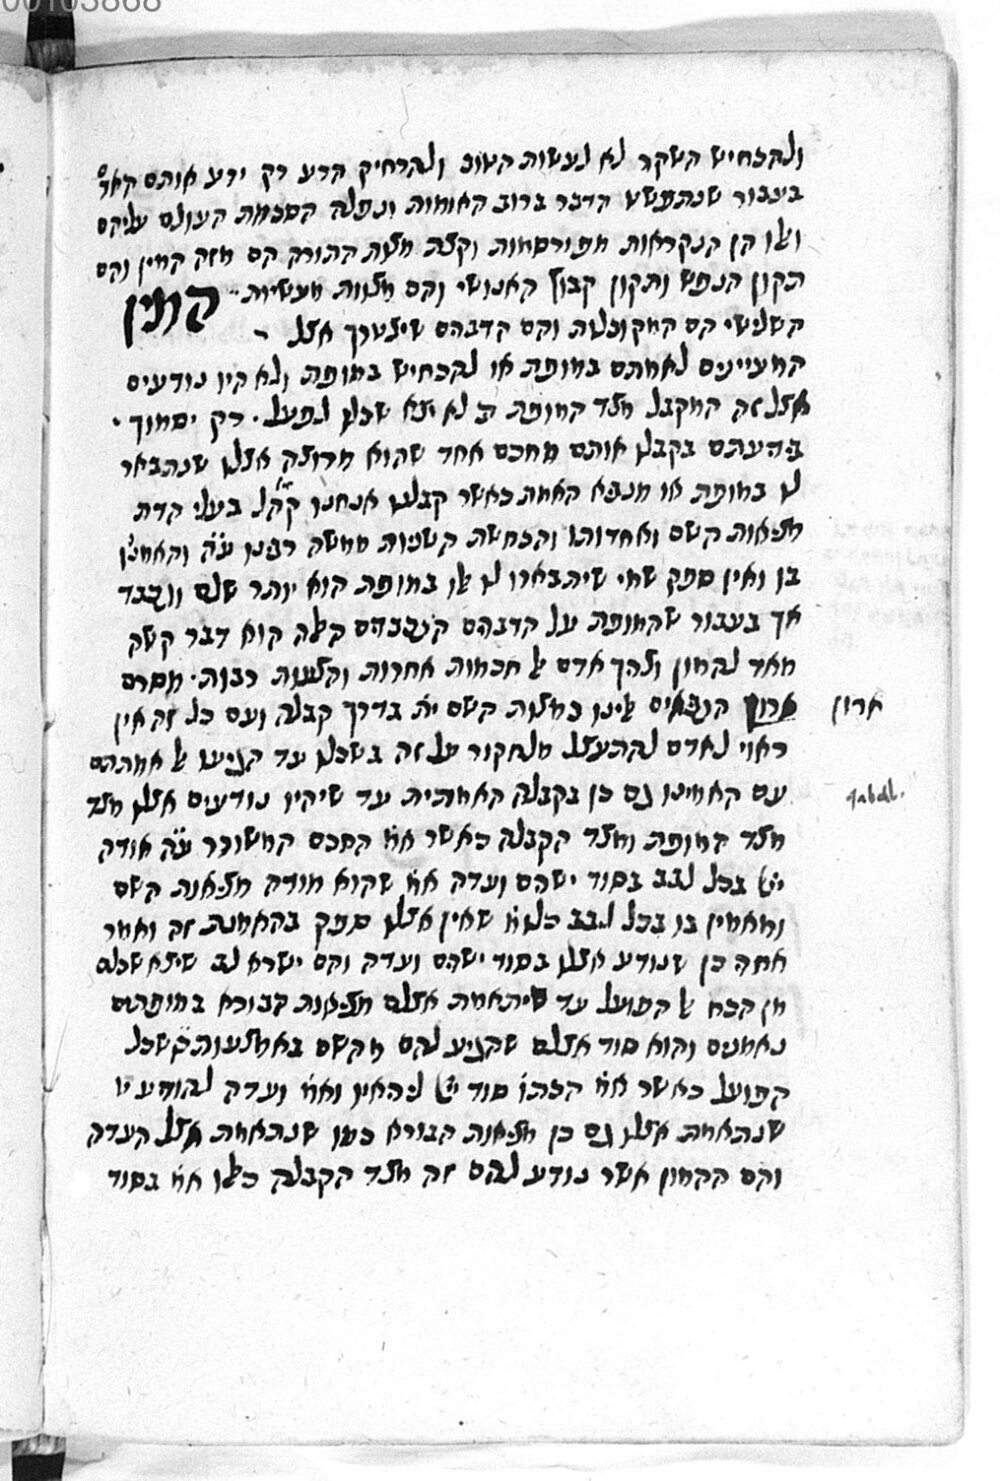 00103868
ולהכחיש השקר לא לעשות הטוב ולהרחיק הרע רק ידע אותם האד'
בעבור שנתפשט הדבר ברוב האומות ונפלה הסכמת העולם עליהם
ואלו הן הנקראות מפורסמות וקצת מצות התורה הם מזה המין והם
תקון הנפש ותקון קבוץ האנושי והם מצוות מעשיות המין
השלישי הם המקובלות והם הדברים שיצטרך אצל
המעיינים לאמתם במופת או להכחיש במופת ולא היו נודעים
אצל זה המקבל מצד המופת כי לא יצא שכלו לפעל רק יסמוך
בידיעתם בקבלו אותם מחכם אחד שהוא מרוצה אצלו שנתבאר
לו במופת או מנביא האמת כאשר קבלנו אנחנו קהל בעלי הדת
מציאות השם ואחדותו והכחשת הגשמות ממשה רבינו ע"ה והאמנו
בו ואין ספק שמי שיתבארו לו אלו במופת הוא יותר שלם ונכבד
אך בעבור שהמופת על הדברים הנכבדים האלה הוא דבר קשה
מאד להמון וצריך אדם אל חכמות אחרות והצעות רבות מסרם
ארון הנביאים אלינו במצות השם ית' בדרך קבלה ועם כל זה אין
ארון
ראוי לאדם להתעצל מלחקור על זה בשכלו עד הגיעו אל אמתתם
עם האמינו גם כן בקבלה האמתית עד שיהיו נודעים אצלו מצד
מצד המופת ומצד הקבלה כאשר אמ' החכם המשורר ע"ה אודה
יי' בכל לבב בסוד ישרים ועדה אמ' שהוא מודה מציאות השם
ומאמין בו בכל לבב כלומ' שאין אצלו ספק בהאמנת זה ואמר
אחר כן שנודע אצלו בסוד ישרים ועדה והם ישראל שיצא שכלם
מן הכח אל הפועל עד שיתאמת אצלם מציאות הבורא במופתים
נאמנים והוא סוד אצלם שהגיע להם מהשם באמצעות השכל
הפועל כאשר אמ' הכתו' סוד יי' ליראיו ואמ' ועדה להודיע
שנתאמת אצלו גם כן מציאות הבורא כמו שנתאמת אצל העדה
והם ההמון אשר נודע להם זה מצד הקבלה כאלו אמ' בסוד